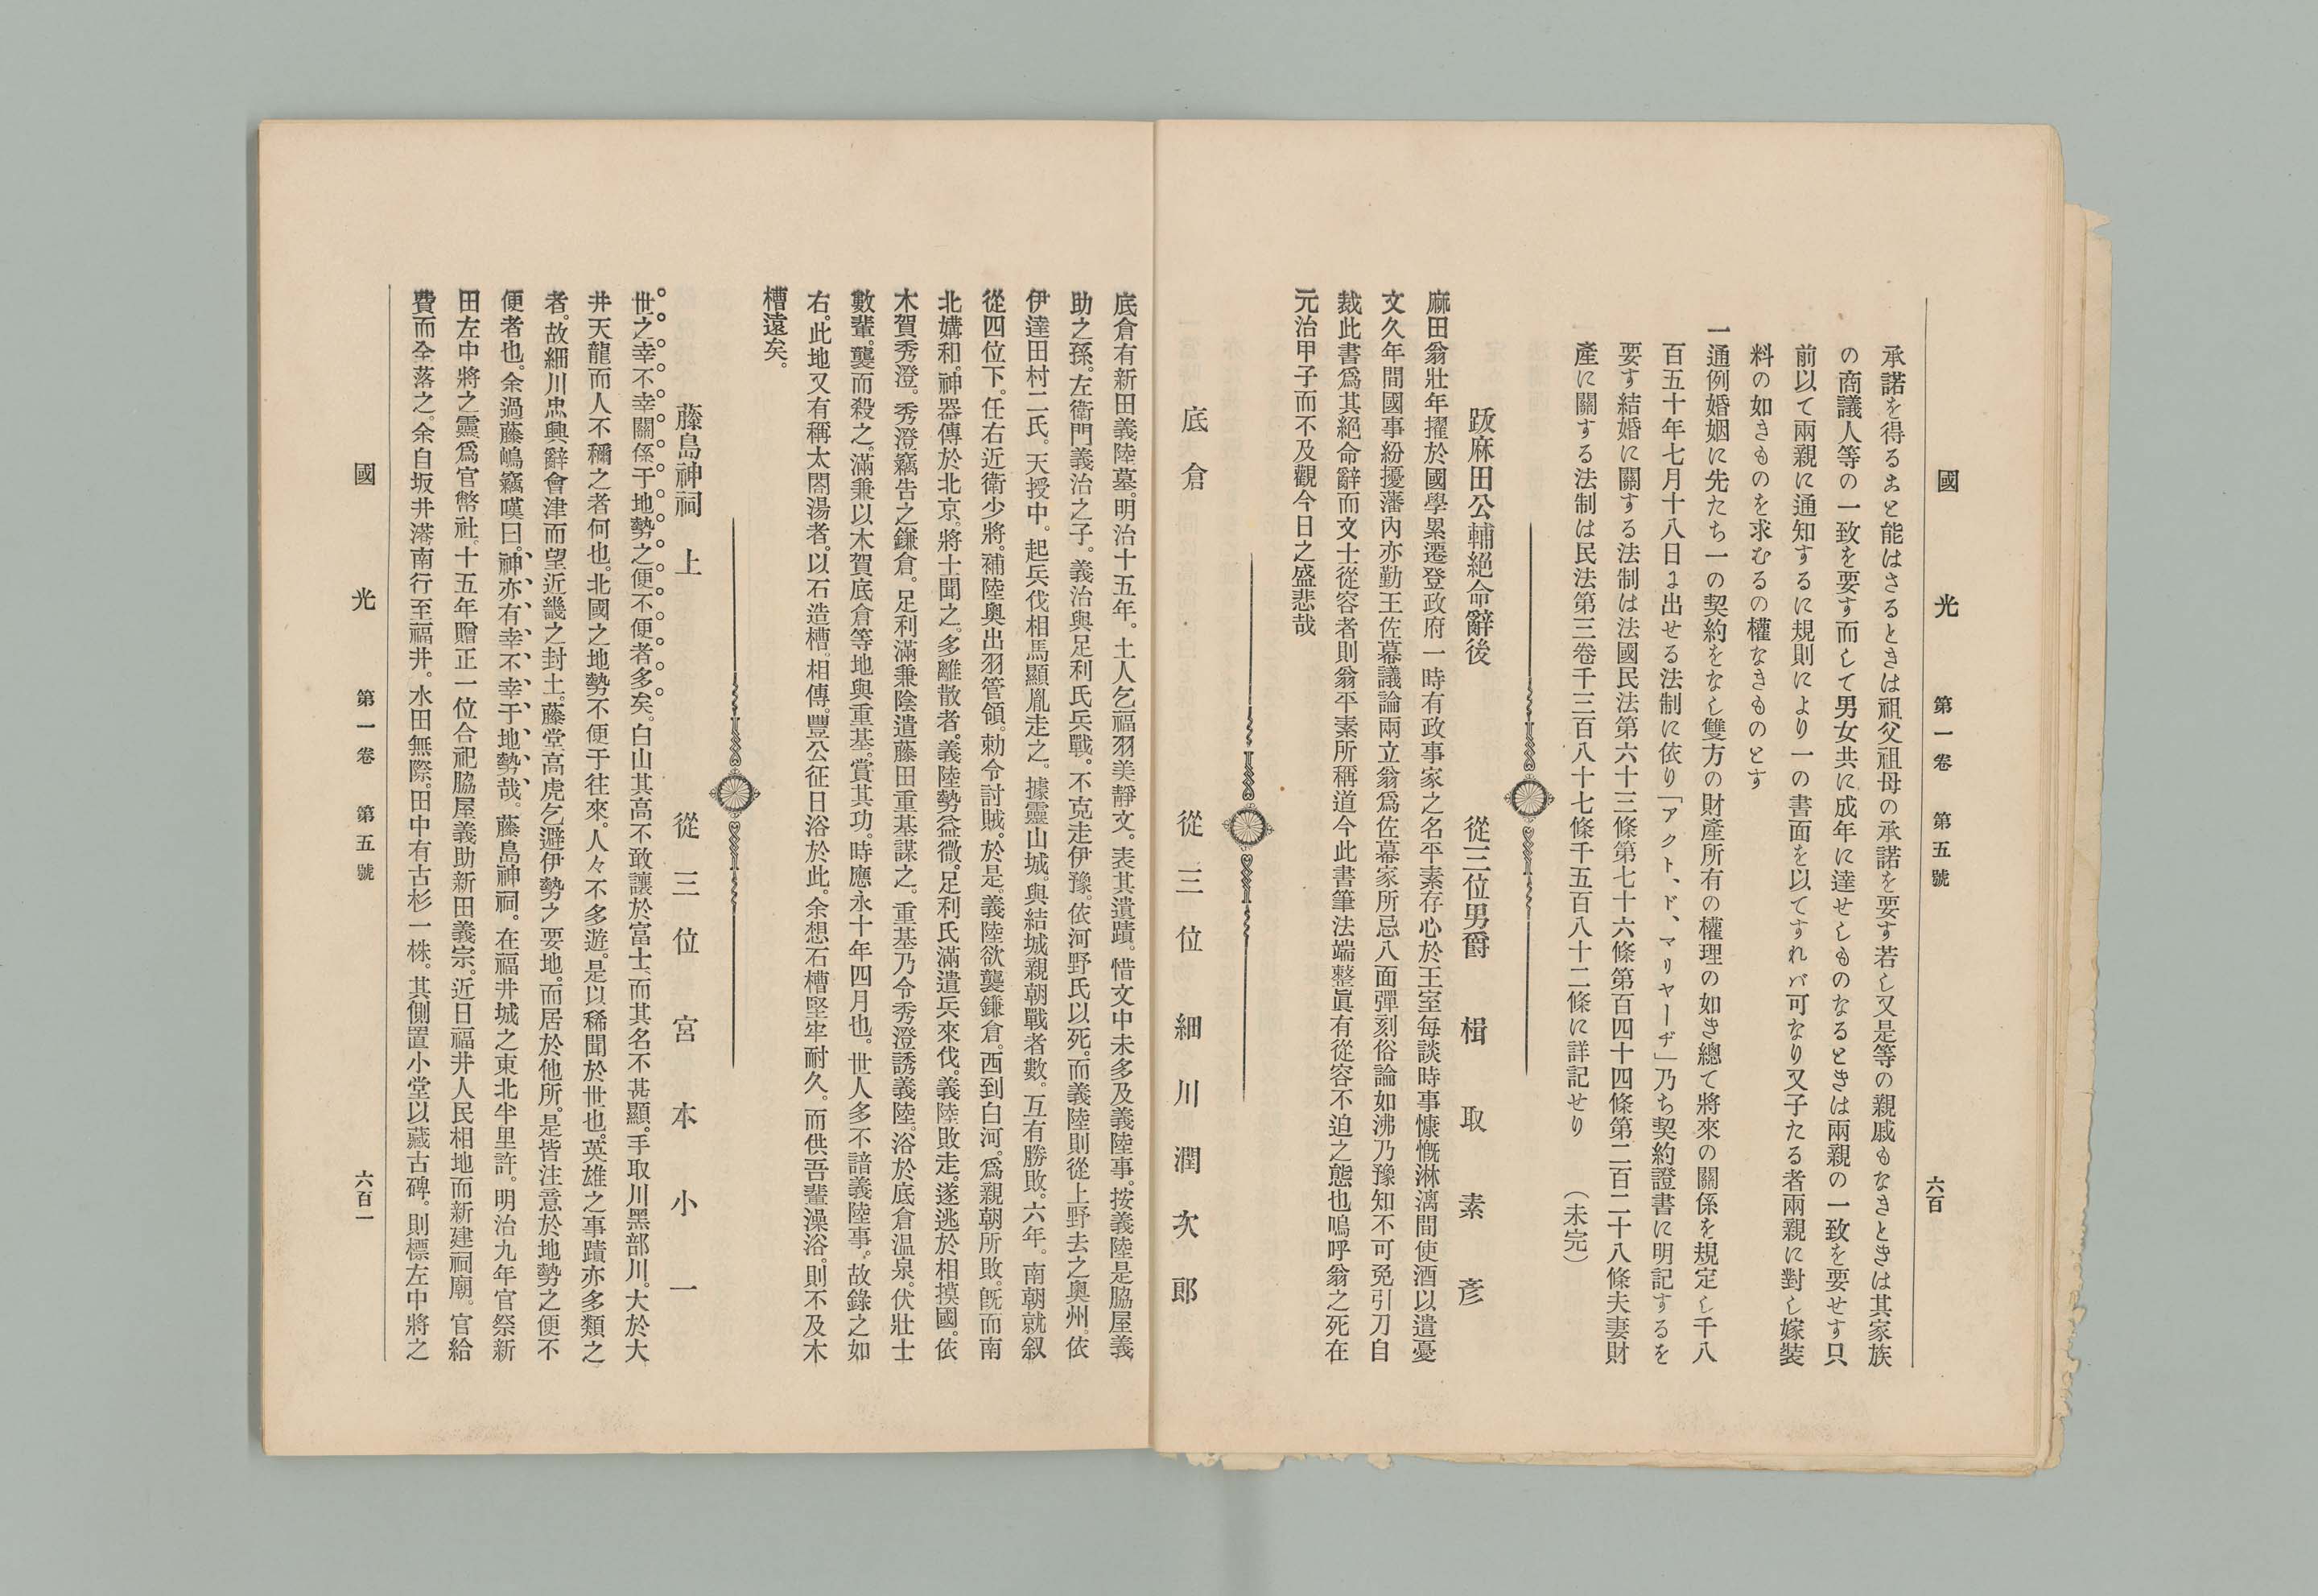 國光 第一卷 第五號 六百
承諾を得るヿと能はさるときは祖父祖母の承諾を要す若し又是等の親戚もなきときは其家族
の商議人等の一致を要す而して男女共に成年に達せしものなるときは兩親の一致を要せす只
前以て兩親に通知するに規則により一の書面を以てすれバ可なり又子たる者兩親に對し嫁裝
料の如きものを求むるの權なきものとす
一通例婚姻に先たち一の契約をなし雙方の財產所有の權理の如き總て將來の關係を規定し千八
百五十年七月十八日に出せる法制に依り「アクト、ド、マリヤーヂ」乃ち契約證書に明記するを
要す結婚に關する法制は法國民法第六十三條第七十六條第百四十四條第二百二十八條夫妻財
產に關する法制は民法第三卷千三百八十七條千五百八十二條に詳記せり (未完)
跋麻田公輔絕命辭後 從三位男爵 楫取素彥
麻田翁壯年擢於國學累遷登政府一時有政事家之名平素存心於王室每談時事慷慨淋漓間使酒以遣憂
文久年間國事紛擾藩內亦勤王佐幕議論兩立翁爲佐幕家所忌八面彈刻俗論如沸乃豫知不可免引刀自
裁此書爲其絕命辭而文士從容者則翁平素所稱道今此書筆法端整眞有從容不迫之態也嗚呼翁之死在
元治甲子而不及觀今日之盛悲哉
底倉 從三位 細川潤次郎
底倉有新田義陸墓。明治十五年。土人乞福羽美靜文。表其遺蹟。惜文中未多及義陸事。按義陸是脇屋義
助之孫。左衛門義治之子。義治與足利氏兵戰。不克走伊豫。依河野氏以死。而義陸則從上野去之奧州。依
伊達田村二氏。天授中。起兵伐相馬顯胤走之。據靈山城。與結城親朝戰者數。互有勝敗。六年。南朝就叙
從四位下。任右近衛少將。補陸奧出羽管領。勅令討賊。於是。義陸欲襲鎌倉。西到白河。爲親朝所敗。既而南
北媾和。神器傳於北京。將士聞之。多離散者。義陸勢益微。足利氏滿遣兵來伐。義陸敗走。遂逃於相摸國。依
木賀秀澄。秀澄竊告之鎌倉。足利滿兼陰遣藤田重基謀之。重基乃令秀澄誘義陸。浴於底倉温泉。伏壯士
數輩。襲而殺之。滿兼以木賀底倉等地與重基。賞其功。時應永十年四月也。世人多不諳義陸事。故錄之如
右。此地又有稱太閤湯者。以石造槽。相傳。豐公征日浴於此。余想石槽堅牢耐久。而供吾輩澡浴。則不及木
槽遠矣。
藤島神祠 上 從三位 宮本小一
世之幸不幸關係于地勢之便不便者多矣。白山其高不敢讓於富士、而其名不甚顯。手取川黑部川。大於大
井天龍而人不稱之者何也。北國之地勢不便于往來。人々不多遊。是以稀聞於世也。英雄之事蹟亦多類之
者。故細川忠興辭會津而望近畿之封土。藤堂高虎乞避伊勢之要地。而居於他所。是皆注意於地勢之便不
便者也。余過藤嶋竊嘆曰。神亦有幸不幸于地勢哉。藤島神祠。在福井城之東北半里許。明治九年官祭新
田左中將之靈爲官幣社。十五年贈正一位合祀脇屋義助新田義宗。近日福井人民相地而新建祠廟。官給
費而全落之。余自坂井港南行至福井。水田無際。田中有古杉一株。其側置小堂以藏古碑。則標左中將之
國光 第一卷 第五號 六百一